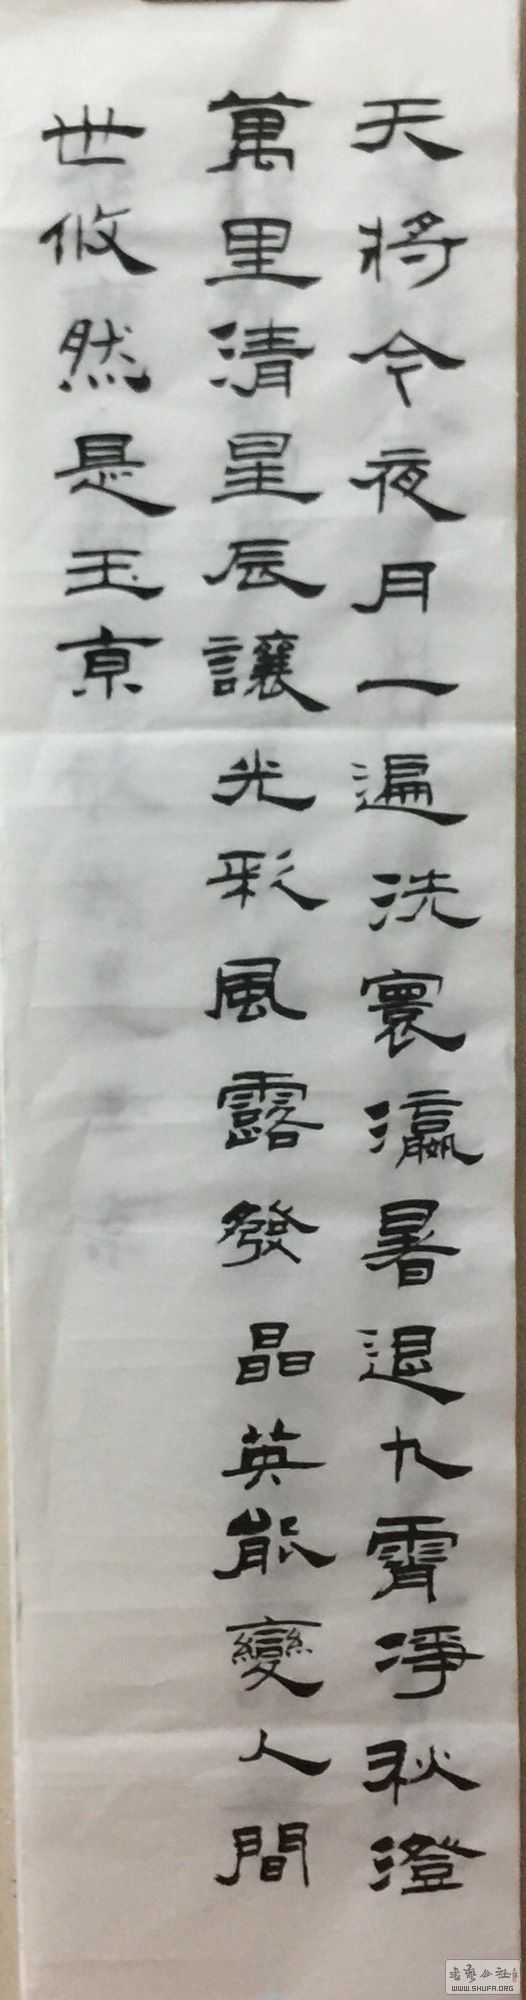 天將今夜月一遍洗寰瀛暑退九霄淨秋澄
萬里清星辰讓光彩風露發晶英能變人間
世攸然是玉京
书艺公社
WWW.SHUFA.ORG